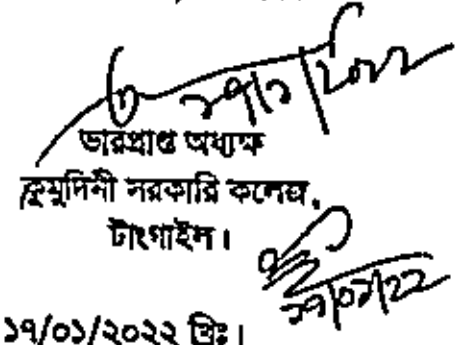 ১৭/১/২০২২
ভারপ্রাপ্ত অধ্যক্ষ
কুমুদিনী সরকারি কলেজ,
টাংগাইল।
১৭/০১/22
১৭/০১/২০২২ খ্রিঃ।